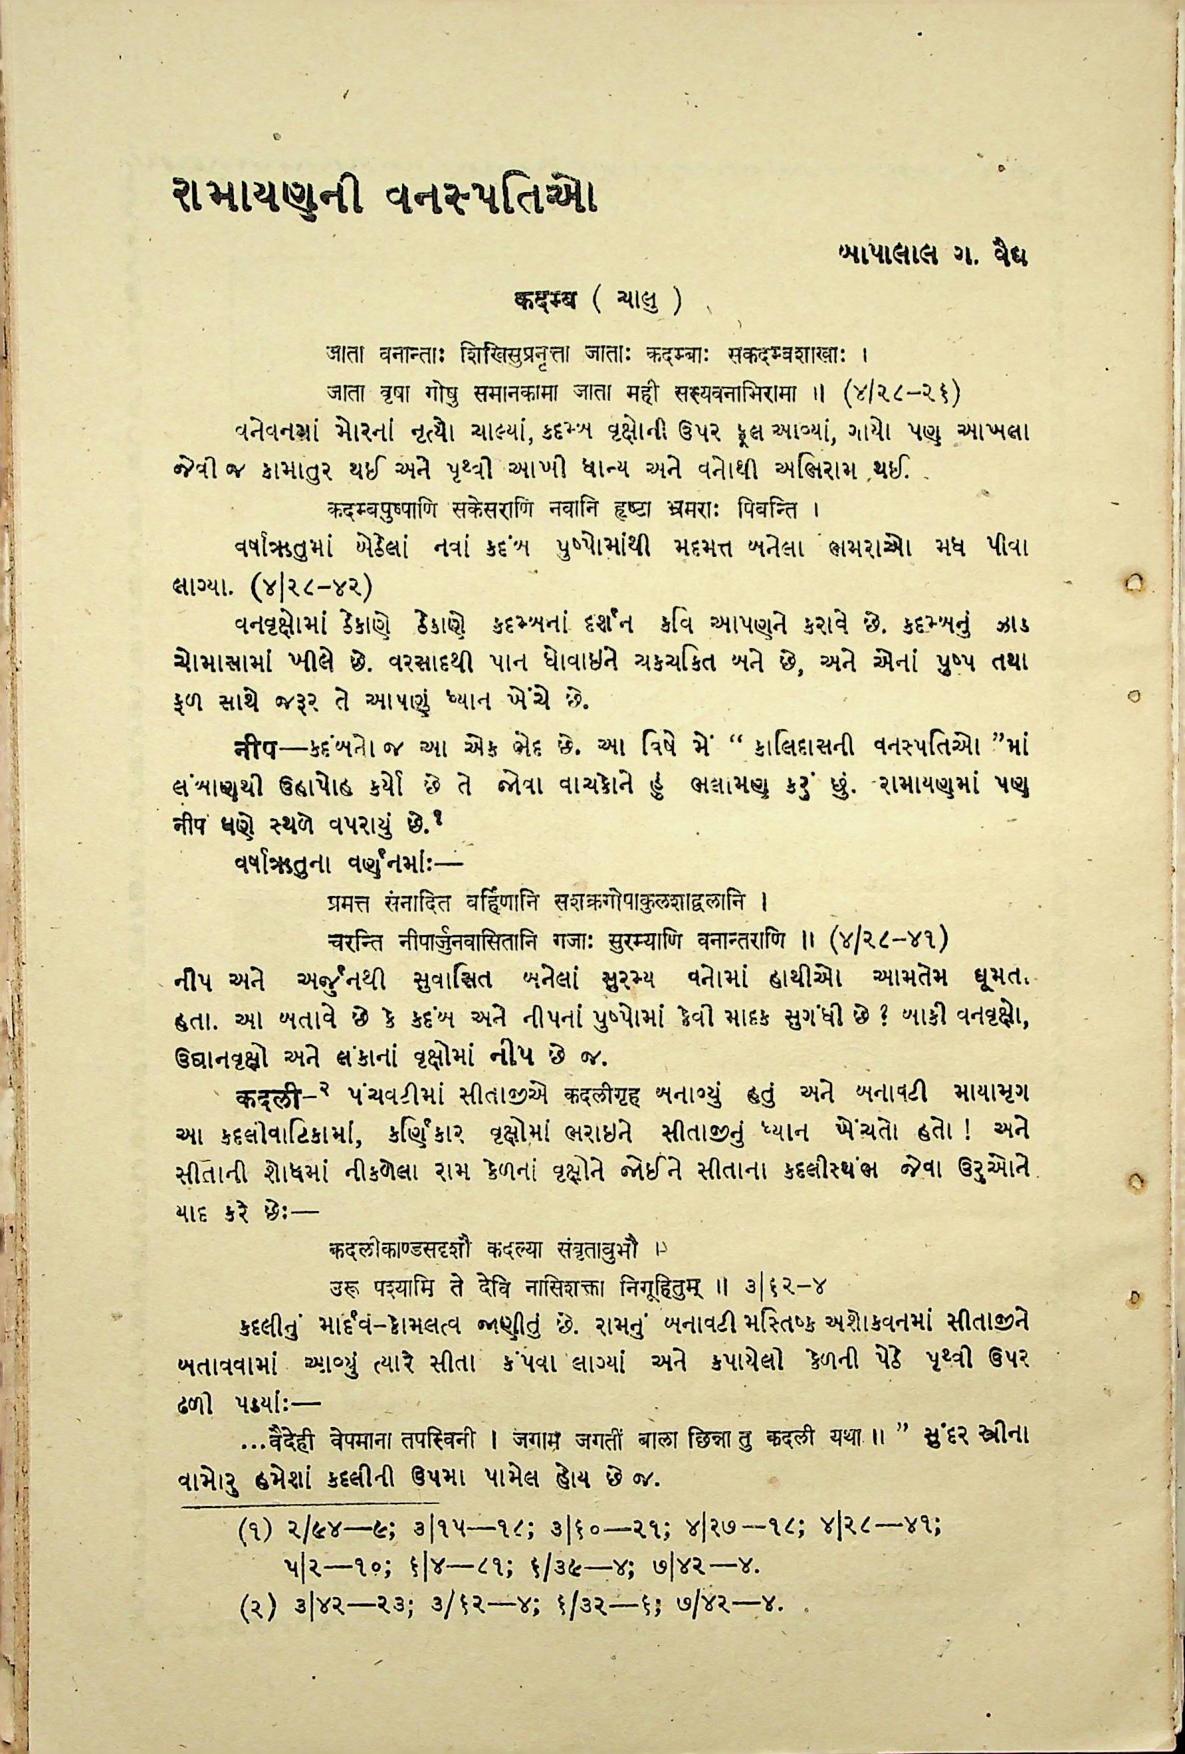 રામાયણની વનસ્પતિઓ
બાપાલાલ ગ. વૈદ્ય
कदम्ब ( ચાલુ )
जाता वनान्ताः शिखिसुप्रनृत्ता जाताः कदम्बाः सकदम्बशाखाः ।
जाता वृषा गोषु समानकामा जाता मही सस्यवनाभिरामा ॥ (૪/૨૮–૨૬)
વનેવનમાં મોરનાં નૃત્યો ચાલ્યાં, કદમ્બ વૃક્ષોની ઉપર ફૂલ આવ્યાં, ગાયો પણ આખલા
જેવી જ કામાતુર થઈ અને પૃથ્વી આખી ધાન્ય અને વનોથી અભિરામ થઈ.
कदम्बपुष्पाणि सकेसराणि नवानि हृष्टा भ्रमराः पिबन्ति ।
વર્ષાઋતુમાં બેઠેલાં નવાં કદંબ પુષ્પોમાંથી મદમત્ત બનેલા ભમરાઓ મધ પીવા
લાગ્યા. (૪/૨૮–૪૨)
વનવૃક્ષોમાં ઠેકાણે ઠેકાણે કદમ્બનાં દર્શન કવિ આપણને કરાવે છે. કદમ્બનું ઝાડ
ચોમાસામાં ખીલે છે. વરસાદથી પાન ધોવાઇને ચકચકિત બને છે, અને એનાં પુષ્પ તથા
ફળ સાથે જરૂર તે આપણું ધ્યાન ખેંચે છે.
નીપ—કદંબનો જ આ એક ભેદ છે. આ વિષે મેં “ કાલિદાસની વનસ્પતિઓ ”માં
લંબાણથી ઉહાપોહ કર્યો છે તે જોવા વાચકોને હું ભલામણ કરું છું. રામાયણમાં પણ
નીપ ઘણે સ્થળે વપરાયું છે.૧
વર્ષાઋતુના વર્ણનમાં:—
प्रमत्त संनादित बर्हिणानि सशक्रगोपाकुलशाद्वलानि ।
चरन्ति नीपार्जुनवासितानि गजाः सुरम्याणि वनान्तराणि ॥ (૪/૨૮–૪૧)
નીપ અને અર્જુનથી સુવાસિત બનેલાં સુરમ્ય વનોમાં હાથીઓ આમતેમ ઘૂમતા
હતા. આ બતાવે છે કે કદંબ અને નીપનાં પુષ્પોમાં કેવી માદક સુગંધી છે ? બાકી વનવૃક્ષો,
ઉદ્યાનવૃક્ષો અને લંકાનાં વૃક્ષોમાં નીપ છે જ.
कदली–૨ પંચવટીમાં સીતાજીએ કદલીગૃહ બનાવ્યું હતું અને બનાવટી માયામૃગ
આ કદલીવાટિકામાં, કર્ણિકાર વૃક્ષોમાં ભરાઇને સીતાજીનું ધ્યાન ખેંચતો હતો ! અને
સીતાની શોધમાં નીકળેલા રામ કેળનાં વૃક્ષોને જોઈને સીતાના કદલીસ્થંભ જેવા ઉરુઓને
યાદ કરે છે:—
कदलीकाण्डसदृशौ कदल्या संवृतावुभौ ।
उरू पश्यामि ते देवि नासिशक्ता निगूहितुम् ॥ ૩/૬૨–૪
કદલીનું માર્દવં–કોમલત્વ જાણીતું છે. રામનું બનાવટી મસ્તિષ્ક અશોકવનમાં સીતાજીને
બતાવવામાં આવ્યું ત્યારે સીતા કંપવા લાગ્યાં અને કપાયેલી કેળની પેઠે પૃથ્વી ઉપર
ઢળી પડ્યાં:—
...वैदेही वेपमाना तपस्विनी । जगाम जगतीं बाला छिन्ना तु कदली यथा ॥ ” સુંદર સ્ત્રીના
વામોરુ હમેશાં કદલીની ઉપમા પામેલ હોય છે જ.
(૧) ૨/૯૪—૯; ૩/૧૫—૧૮; ૩/૬૦—૨૧; ૪/૨૭—૧૮; ૪/૨૮—૪૧;
૫/૨—૧૦; ૬/૪—૮૧; ૬/૩૯—૪; ૭/૪૨—૪.
(૨) ૩/૪૨—૨૩; ૩/૬૨—૪; ૬/૩૨—૬; ૭/૪૨—૪.